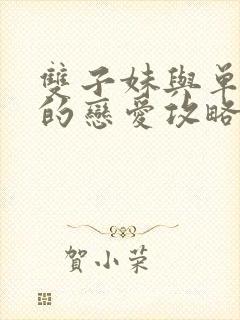 雙子妹與單
的戀愛攻略
賀小荣